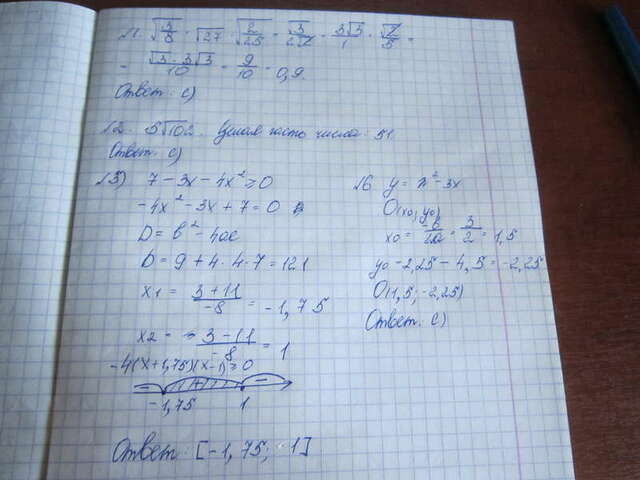 √1. √3/8 · √27 · √2/25 = √3/2√2 · 3√3/1 · √2/5 =
= √3 · 3√3/10 = 9/10 = 0,9
Ответ: с)
√2. 5√102. Целая часть числа: 51
Ответ: с)
√3) 7 - 3x - 4x² ≥ 0
-4x² - 3x + 7 = 0
D = b² - 4ac
D = 9 + 4 · 4 · 7 = 121
x1 = 3+11/-8 = -1,75
x2 = 3-11/-8 = 1
-4(x+1,75)(x-1) ≥ 0
- + -
-1,75 1
Ответ: [-1,75; 1]
√6 y = x² - 3x
O(x0; y0)
x0 = -b/2a = 3/2 = 1,5
y0 = 2,25 - 4,5 = -2,25
O(1,5; -2,25)
Ответ: с)